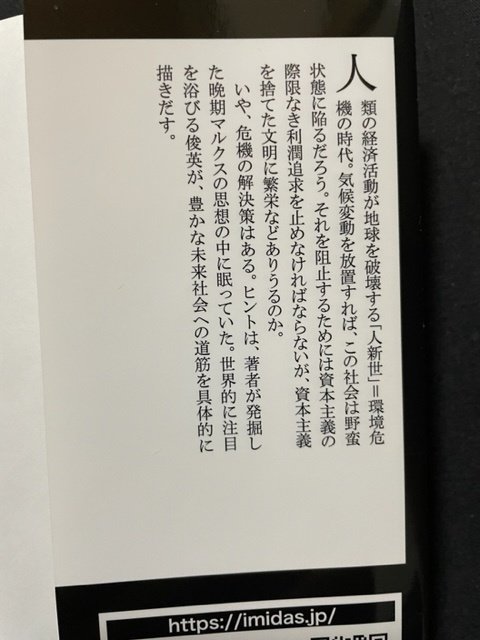 人類の経済活動が地球を破壊する「人新世」＝環境危
機の時代。気候変動を放置すれば、この社会は野蛮
状態に陥るだろう。それを阻止するためには資本主義の
際限なき利潤追求を止めなければならないが、資本主義
を捨てた文明に繁栄などありうるのか。
いや、危機の解決策はある。ヒントは、著者が発掘し
た晩期マルクスの思想の中に眠っていた。世界的に注目
を浴びる俊英が、豊かな未来社会への道筋を具体的に
描きだす。
https://imidas.jp/